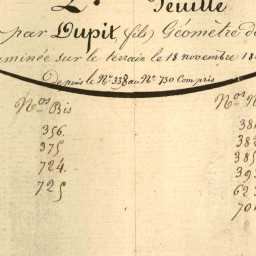 2e Feuille
par Dupit, (fils) Géomètre d
aminée sur le terrain le 18 novembre 18
Depuis le No. 338 au No. 730 Compris
Nos Bis
356.
375
724.
725
Nos N
38
38
385
39
62
70